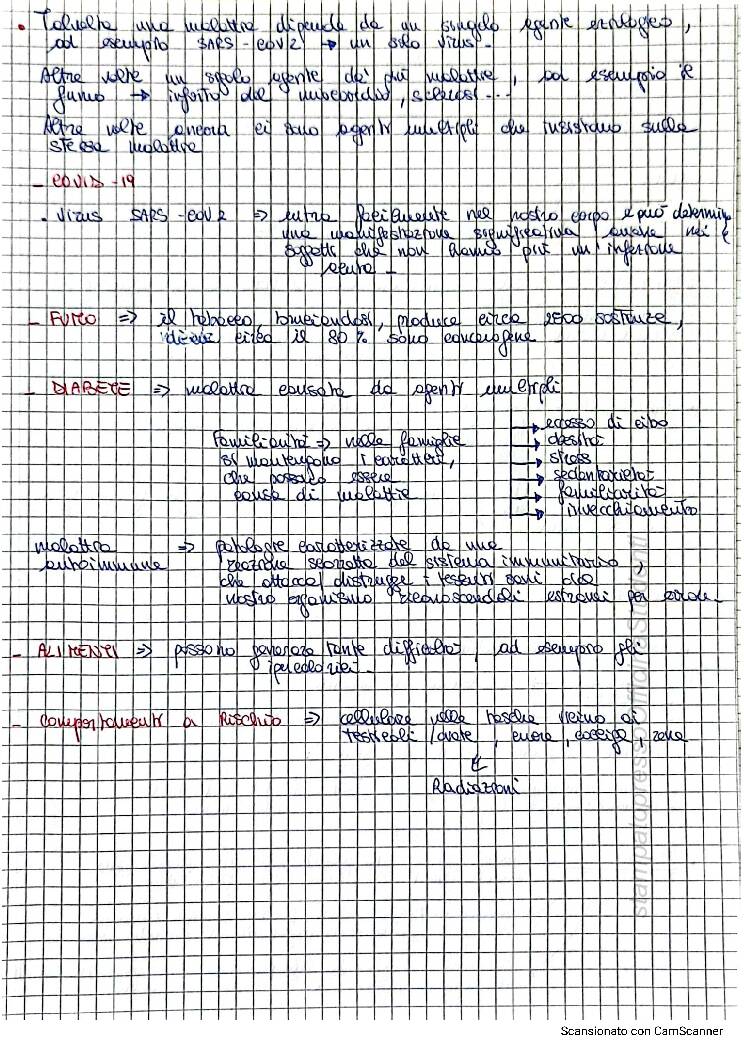 • Talvolta una malattia dipende da un singolo agente eziologico,
ad esempio SARS-COV2 → un solo virus.
Altre volte un singolo agente dà più malattie, ad esempio il
fumo → infarto del miocardio, sclerosi...
Altre volte ancora ci sono agenti multipli che insistono sulla
stessa malattia
- COVID-19
• Virus SARS-COV2 => entra facilmente nel nostro corpo e può determinare
una manifestazione significativa anche nei
soggetti che non hanno più un'infezione
acuta -
- FUMO => il tabacco, bruciandosi, produce circa 2500 sostanze,
di cui circa il 80% sono cancerogene -
- DIABETE => malattia causata da agenti multipli
→ eccesso di cibo
→ obesità
→ stress
→ sedentarietà
→ familiarità
→ invecchiamento
Familiarità => nelle famiglie
si mantengono i caratteri,
che possono essere
causa di malattie
malattia autoimmune => patologie caratterizzate da una
reazione scorretta del sistema immunitario,
che attacca/distrugge i tessuti sani del
nostro organismo riconoscendoli estranei per errore -
- ALIMENTI => possono generare tante difficoltà, ad esempio gli
ipercalorici -
- Comportamenti a Rischio => cellulare nella tasca vicino ai
testicoli/ovaie, cuore, coccige, rene
Radiazioni
stampatopresso Officine Studenti
Scansionato con CamScanner